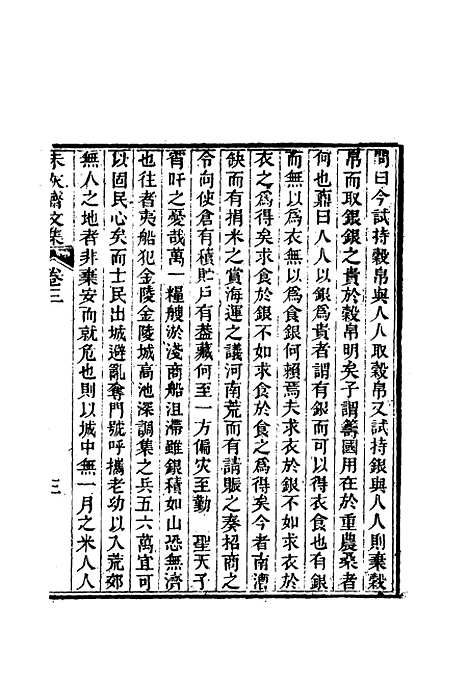 問曰今試持穀帛與人人取穀帛又試持銀與人人則棄穀
帛而取銀銀之貴於穀帛明矣子謂籌國用在於重農桑者
何也薡曰人人以銀爲貴者謂有銀而可以得衣食也有銀
而無以爲衣無以爲食銀何賴焉夫求衣於銀不如求衣於
衣之爲得矣求食於銀不如求食於食之爲得矣今者南漕
缺而有捐米之賞海運之議河南荒而有請賬之奏招商之
令向使倉有積貯戶有蓋藏何至一方偏災至勤　聖天子
宵旰之憂哉萬一糧艘淤淺商船沮滯雖銀積如山恐無濟
也往者夷船犯金陵金陵城高池深調集之兵五六萬宜可
以固民心矣而士民出城避亂奪門號呼攜老幼以入荒郊
無人之地者非棄安而就危也則以城中無一月之米人人
未灰齋文集　卷三　三